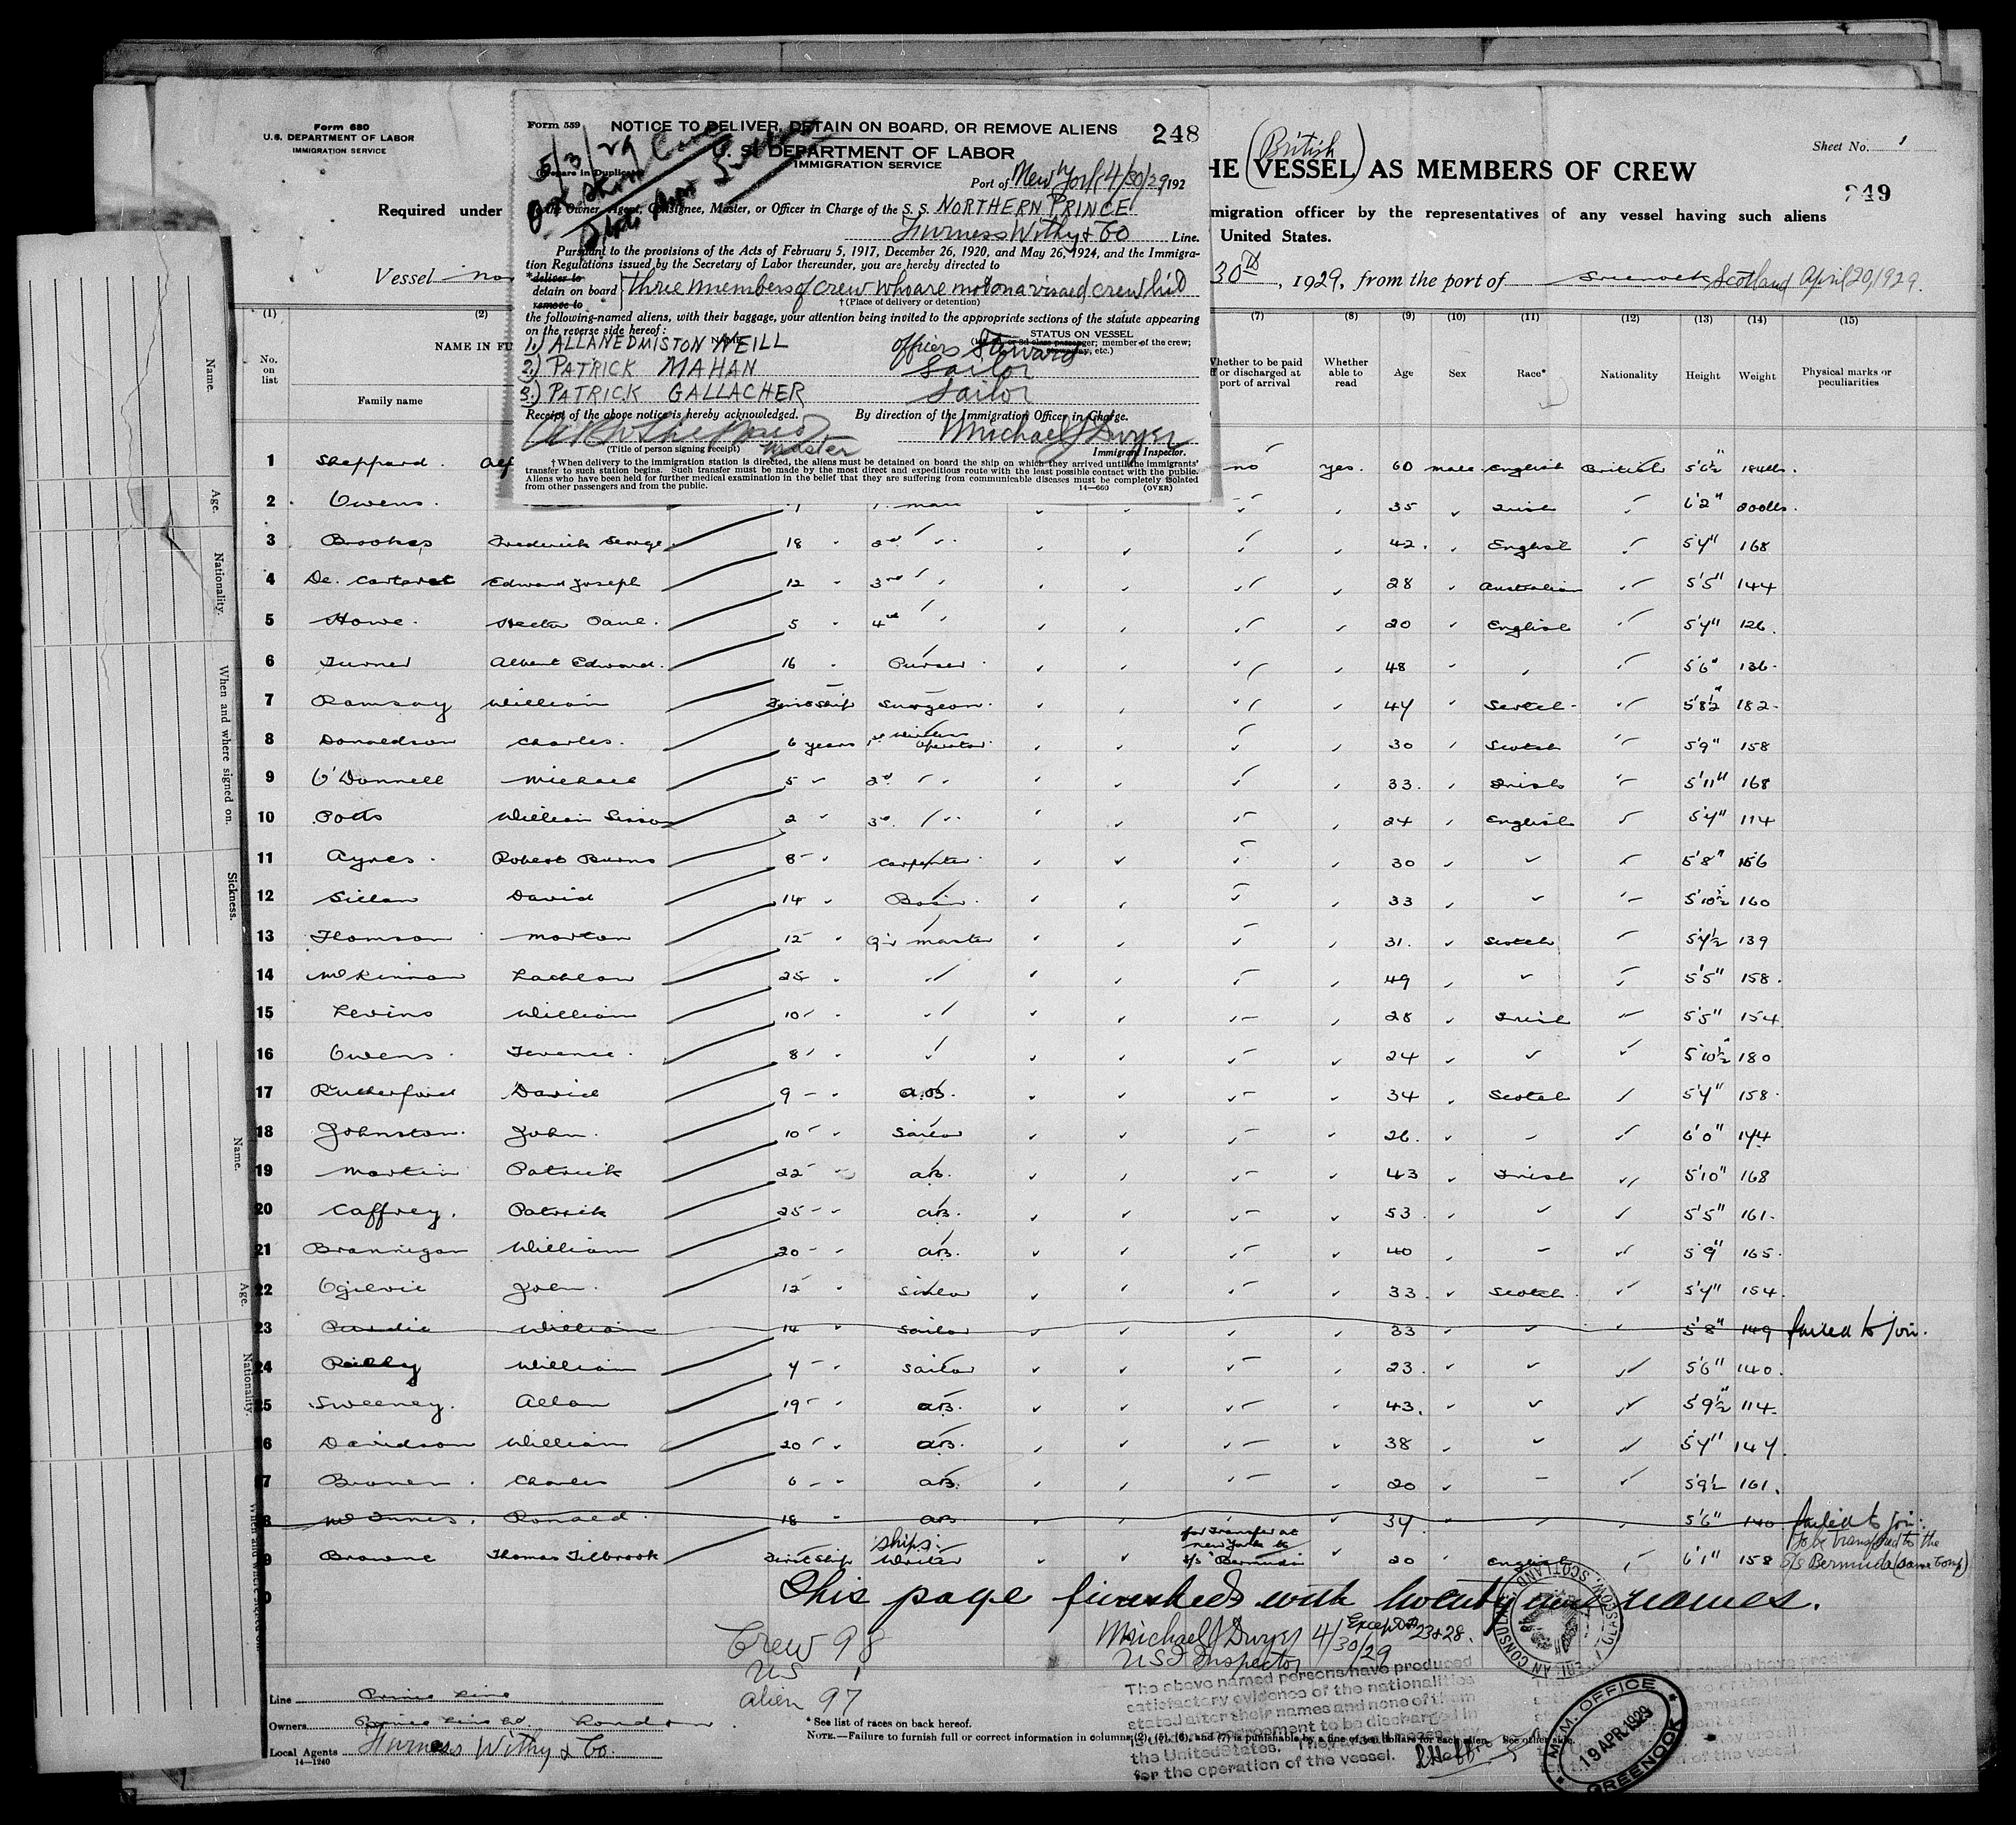 Form 680
U.S. DEPARTMENT OF LABOR
IMMIGRATION SERVICE
Required under
Vessel
Form 559
NOTICE TO DELIVER, DETAIN ON BOARD, OR REMOVE ALIENS 248
U. S. DEPARTMENT OF LABOR
IMMIGRATION SERVICE
5/3/29
(Prepare in Duplicate)
Port of New York 4/30/29 192
To the Owner, Agent, Consignee, Master, or Officer in Charge of the S. S. NORTHERN PRINCE
Furness Withy & Co Line.
Pursuant to the provisions of the Acts of February 5, 1917, December 26, 1920, and May 26, 1924, and the Immigra-
tion Regulations issued by the Secretary of Labor thereunder, you are hereby directed to
*deliver to
detain on board three members of crew who are not on a visaed crew list
remove to
†(Place of delivery or detention)
the following-named aliens, with their baggage, your attention being invited to the appropriate sections of the statute appearing
on the reverse side hereof:
NAME STATUS ON VESSEL
1.) ALLAN EDMISTON NEILL officers Steward
2.) PATRICK MAHAN Sailor
3.) PATRICK GALLACHER Sailor
Receipt of the above notice is hereby acknowledged. By direction of the Immigration Officer in Charge.
Michael J Dwyer
(Title of person signing receipt) Master Immigrant Inspector.
†When delivery to the immigration station is directed, the aliens must be detained on board the ship on which they arrived until the immigrants'
transfer to such station begins. Such transfer must be made by the most direct and expeditious route with the least possible contact with the public.
Aliens who have been held for further medical examination in the belief that they are suffering from communicable diseases must be completely isolated
from other passengers and from the public. 14—660 (OVER)
British
HE VESSEL AS MEMBERS OF CREW
Sheet No. 1
249
migration officer by the representatives of any vessel having such aliens
United States.
30th, 1929, from the port of Greenock Scotland April 20, 1929.
(1) (2) (7) (8) (9) (10) (11) (12) (13) (14) (15)
No. on list
NAME IN FU
Family name
Whether to be paid off or discharged at port of arrival
Whether able to read
Age
Sex
Race*
Nationality
Height
Weight
Physical marks or peculiarities
1 Sheppard. Alf no yes. 60 male English British 5'6½" 184lbs.
2 Owens. 35 Irish 6'2" 200lbs.
3 Brookes Frederick George 18 2nd 42. English 5'7" 168
4 De. Carteret Edward Joseph 12 3rd 28 Australian 5'5" 144
5 Howe. Hector Paul. 5 4th 20 English 5'7" 126.
6 Turner Albert Edward. 16 Purser. 48 5'6" 136.
7 Ramsay William First Ship Surgeon. 47 Scotch 5'8½" 182.
8 Donaldson Charles. 6 years 1st Wireless Operator. 30 Scotch 5'9" 158
9 O'Donnell Michael 5 2nd 33. Irish 5'11" 168
10 Potts William Sisson 2 3rd 24 English 5'7" 114
11 Ayres. Robert Burns 8 Carpenter. 30 5'8" 156
12 Sillan David 14 Bosin. 33 5'10½" 160
13 Thomson Morton 12 Qr master 31. Scotch 5'7½ 139
14 McKinnon Lachlan 25 49 5'5" 158.
15 Levins William 10 28 Irish 5'5" 154
16 Owens. Terence. 8 24 5'10½" 180
17 Rutherford David 9 A.B. 34 Scotch 5'7" 158.
18 Johnston. John. 10 Sailor 26. 6'0" 174
19 Martin Patrick 22 AB. 43 Irish 5'10" 168
20 Caffrey. Patrick 25 AB. 53. 5'5" 161.
21 Brannigan William 20 AB. 40 5'9" 165.
22 Ogilvie John. 12 Sailor 33. Scotch. 5'7" 154.
23 Purdie William 14 Sailor 33 5'8" 149 failed to join.
24 Reilly William 7 Sailor 23. 5'6" 140.
25 Sweeney. Allan 19 AB. 43. 5'9½" 114.
26 Davidson William 20 AB. 38 5'7" 147.
7 Charles 6 AB. 20 5'9½ 161.
8 McInnes. Ronald. 18 AB 37. 5'6" 140. failed to join.
9 Browne Thomas Tilbrook First Ship Ships: Writer for Transfer at New York to S/S "Bermuda" 20 English 6'1" 158 To be transferred to the S/S Bermuda (same Comp)
0
This page finished with twenty nine names.
Except 23 & 28.
Crew 98
US 1
alien 97
Michael J Dwyer 4/30/29
U S I Inspector
The above named persons have produced
satisfactory evidence of the nationalities
stated after their names and none of them
the United States.
for the operation of the vessel.
AMERICAN CONSULATE GLASGOW, SCOTLAND
MEM. OFFICE
19 APR. 1929
GREENOCK
Line Prince Line
Owners Prince Line Ltd. London
Local Agents Furness Withy & Co.
14—1240
* See list of races on back hereof.
NOTE.—Failure to furnish full or correct information in columns (2), (5), (6), and (7) is punishable by a fine of ten dollars for each alien. See other side.
Name.
Age.
Nationality.
When and where signed on.
Sickness.
Name.
Age.
Nationality.
When and where signed on.